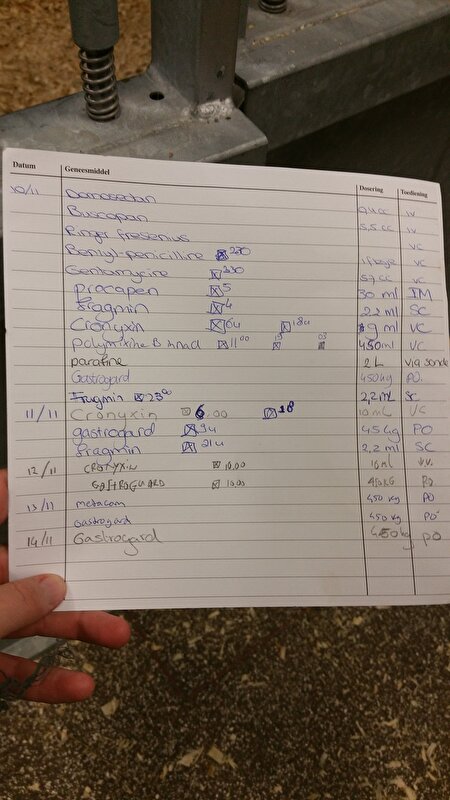 Datum Geneesmiddel Dosering Toediening
10/11 Domosedan 0,4cc IV
Buscopan 5.5 cc IV
Ringer fresenius VC
Benzyl-penicilline 230 VC
Gentamycine 230 57 cc VC
procapen 5 30 ml IM
fragmin 4 2,2 ml SC
Cronyxin 6u 18u 9 ml VC
polymixine B 11 00 19 03 450ml VC
parafine 2L via sonde
Gastrogard 450kg PO.
Fragmin 23 00 2,2mL SC
11/11 Cronyxin 6.00 18 10mL VC
gastrogard 9u 45kg PO
fragmin 21u 2,2 ml SC
12/11 CRONYXIN 10.00 10mL IV.
GASTROGUARD 10.00 PO.
13/11 metacam 450 kg PO
Gastrogard 450 kg PO
14/11 Gastrogard 450kg PO